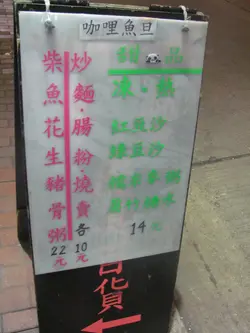 咖哩魚旦
炒麵・腸粉・燒賣各10元
柴魚花生豬骨粥22元
甜品
凍・熱
紅豆沙
綠豆沙
14元
百貨